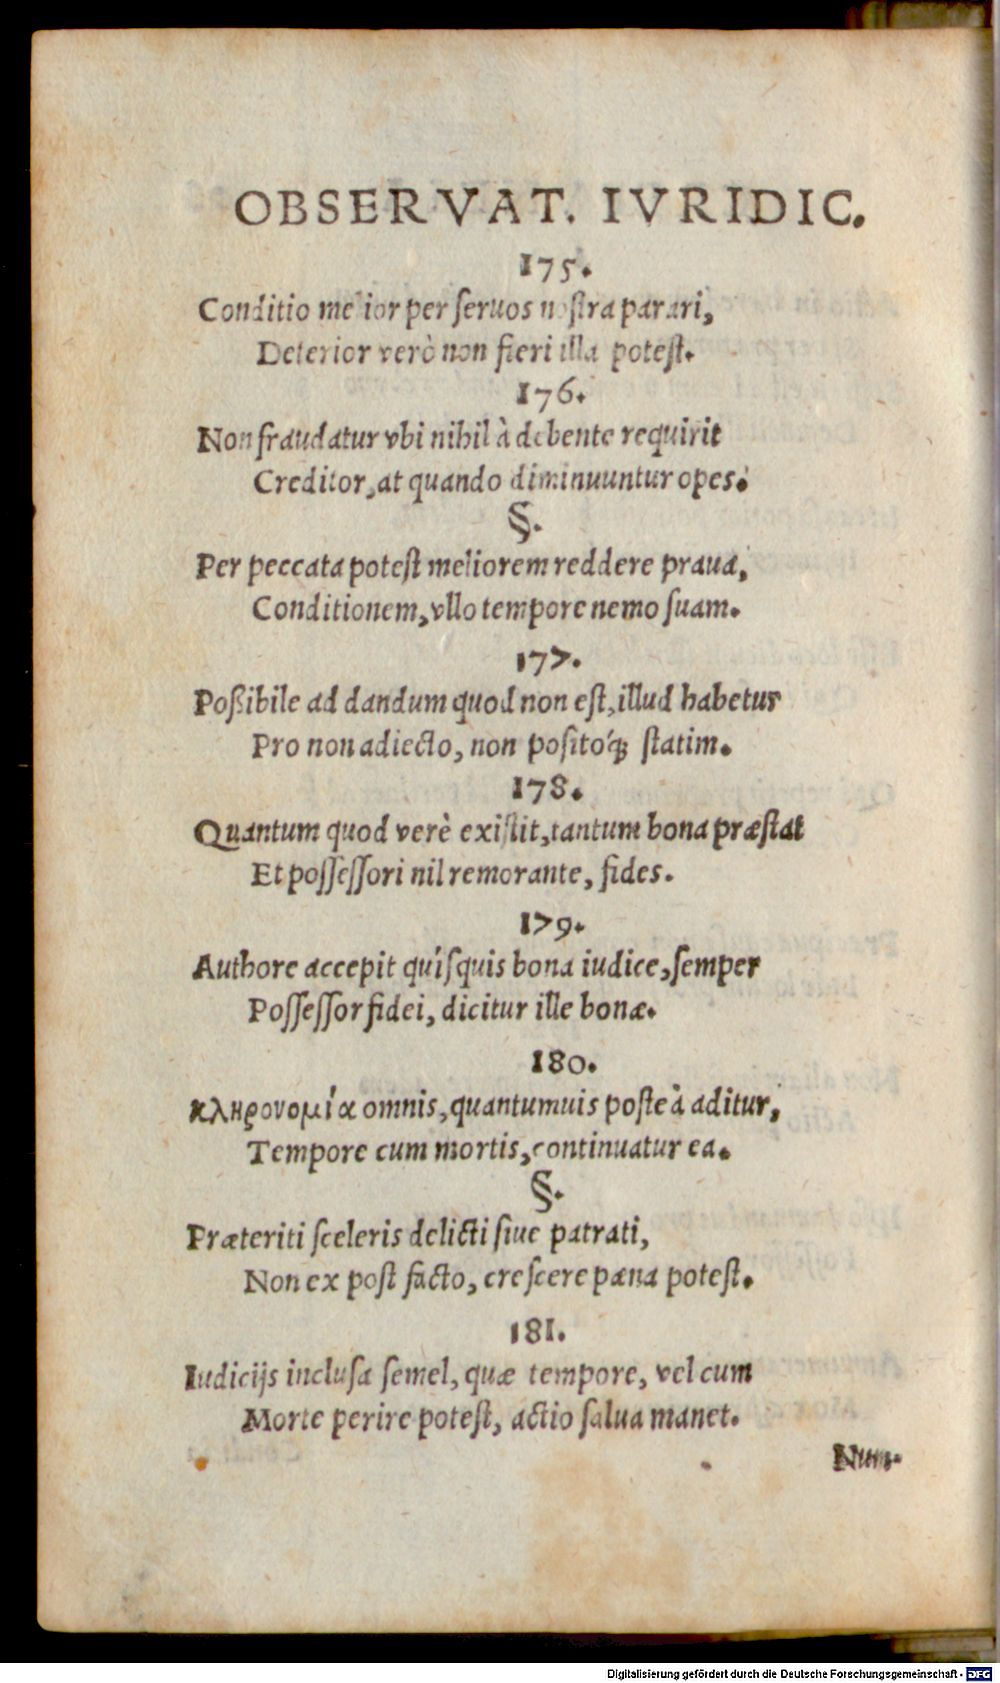 OBSERVAT. IVRIDIC.
175.
Conditio melior per ſeruos noſtra parari,
Deterior verò non fieri illa poteſt.
176.
Non fraudatur vbi nihil à debente requirit
Creditor, at quando diminuuntur opes.
§.
Per peccata poteſt meliorem reddere praua,
Conditionem, vllo tempore nemo ſuam.
177.
Poßibile ad dandum quod non eſt, illud habetur
Pro non adiecto, non poſitoq́; ſtatim.
178.
Quantum quod verè exiſtit, tantum bona præſtat
Et poſſeſſori nil remorante, fides.
179.
Authore accepit quiſquis bona iudice, ſemper
Poſſeſſor fidei, dicitur ille bonæ.
180.
κληρονομία omnis, quantumuis poſteà aditur,
Tempore cum mortis, continuatur ea.
§.
Præteriti ſceleris delicti ſiue patrati,
Non ex poſt facto, creſcere pæna poteſt.
181.
Iudicijs incluſa ſemel, quæ tempore, vel cum
Morte perire poteſt, actio ſalua manet.
Num-
Digitalisierung gefördert durch die Deutsche Forschungsgemeinschaft - DFG